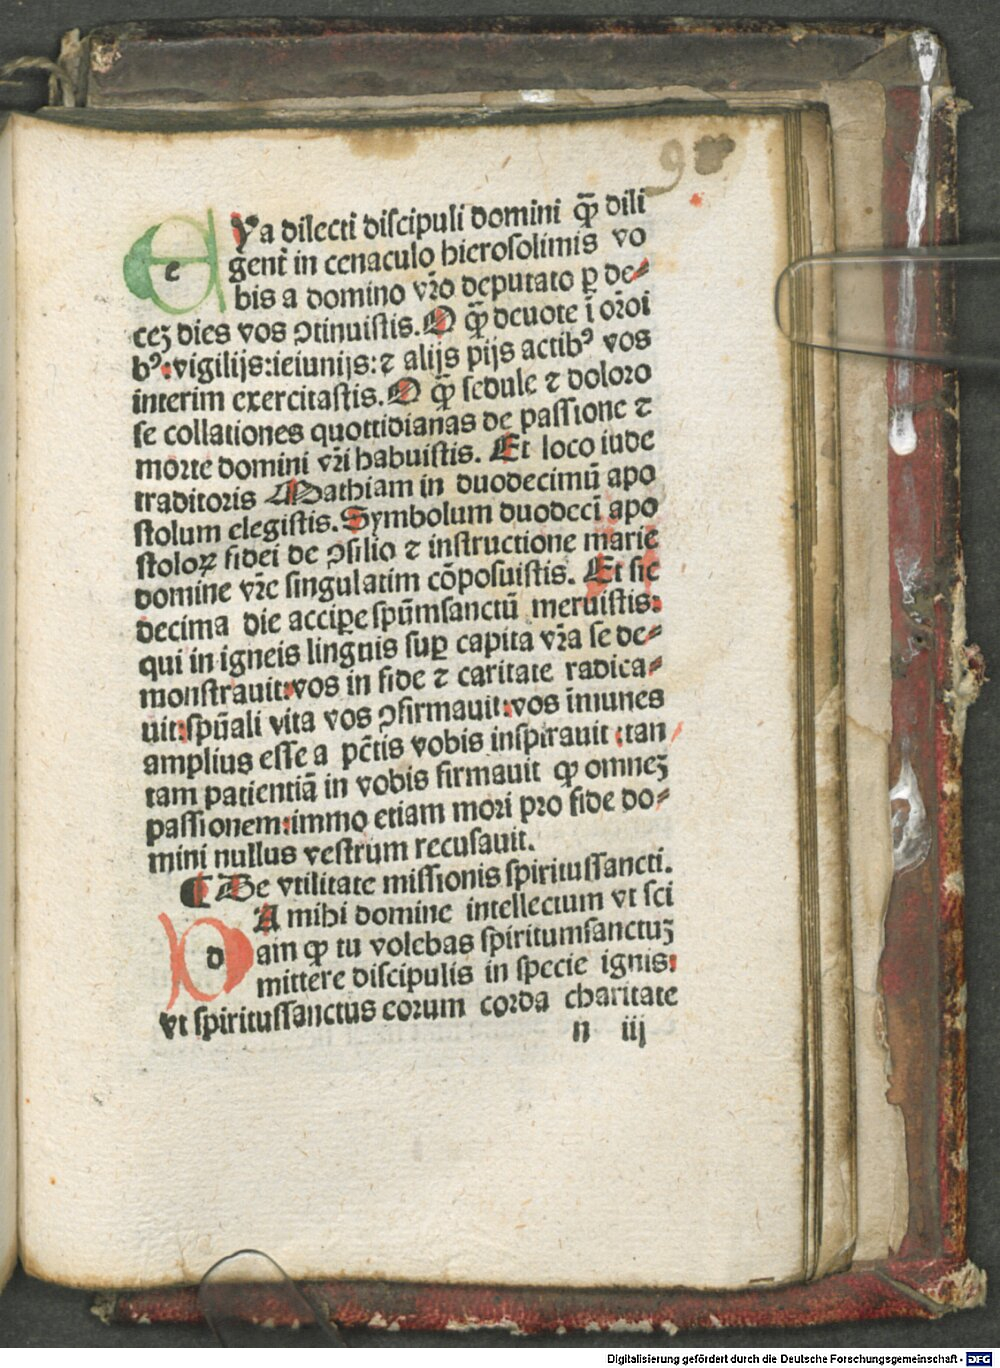 98
EYa dilecti discipuli domini qȝ̄ dili
gent̃ in cenaculo hierosolimis vo
bis a domino vr̃o deputato ꝑ de⸗
ceʒ dies vos ꝯtinuistis. O qȝ̄ deuote ī or̃oi
bꝰ: vigilijs: ieiunijs: ⁊ alijs pijs actibꝰ vos
interim exercitastis. O qȝ̄ sedule ⁊ doloro
se collationes quottidianas de passione ⁊
morte domini vr̃i habuistis. Et loco iude
traditoris Mathiam in duodecimū apo
stolum elegistis. Symbolum duodecī apo
stoloꝝ fidei de ꝯsilio ⁊ instructione marie
domine vr̃e singulatim cōposuistis. Et sic
decima die acciꝑe spūmsanctū meruistis:
qui in igneis linguis suꝑ capita vr̃a se de⸗
monstrauit: vos in fide ⁊ caritate radica⸗
uit: spūali vita vos ꝯfirmauit: vos īmunes
amplius esse a pc̃tis vobis inspirauit: tan
tam patientiā in vobis firmauit ꝙ omneʒ
passionem: immo etiam mori pro fide do⸗
mini nullus vestrum recusauit.
¶ De vtilitate missionis spiritussancti.
DA mihi domine intellectum vt sci
am ꝙ tu volebas spiritumsanctuʒ
mittere discipulis in specie ignis:
vt spiritussanctus eorum corda charitate
n iij
Digitalisierung gefördert durch die Deutsche Forschungsgemeinschaft - DFG